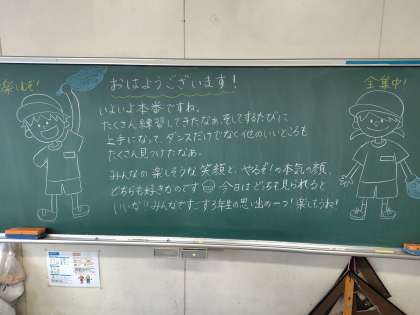 楽しんで!
おはようございます!
全集中!
いよいよ本番ですね。
たくさん練習してきたなぁ。そしてするたびに
上手になって、ダンスだけでなく他のいいところも
たくさん見つけたなぁ。
みんなの楽しそうな笑顔と、やるぞ!の本気の顔、
どちらも好きなのです 今日はどっちも見られると
いいな みんなですごす3年生の思い出の一つ!楽しもうね!